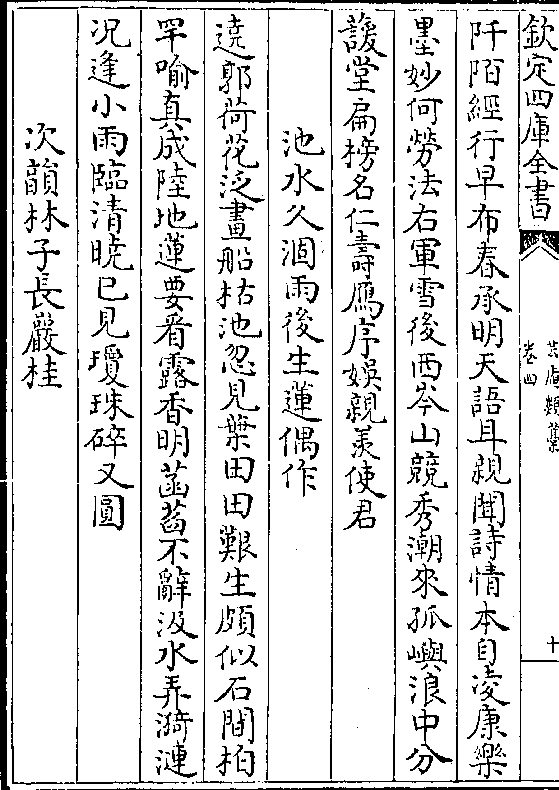 欽定四庫全書
芸庵類藁
卷四
十
阡陌經行早布春承明天語耳親聞詩情本自凌康樂
墨妙何勞法右軍雪後西岑山競秀潮來孤嶼浪中分
諼堂扁榜名仁壽鴈序娛親羨使君
池水久涸雨後生蓮偶作
遶郭荷花泛畫船枯池忽見葉田田艱生頗似石間柏
罕喻真成陸地蓮要看露香明菡萏不辭汲水弄漪漣
况逢小雨臨清曉已見瓊珠碎又圓
次韻林子長巖桂